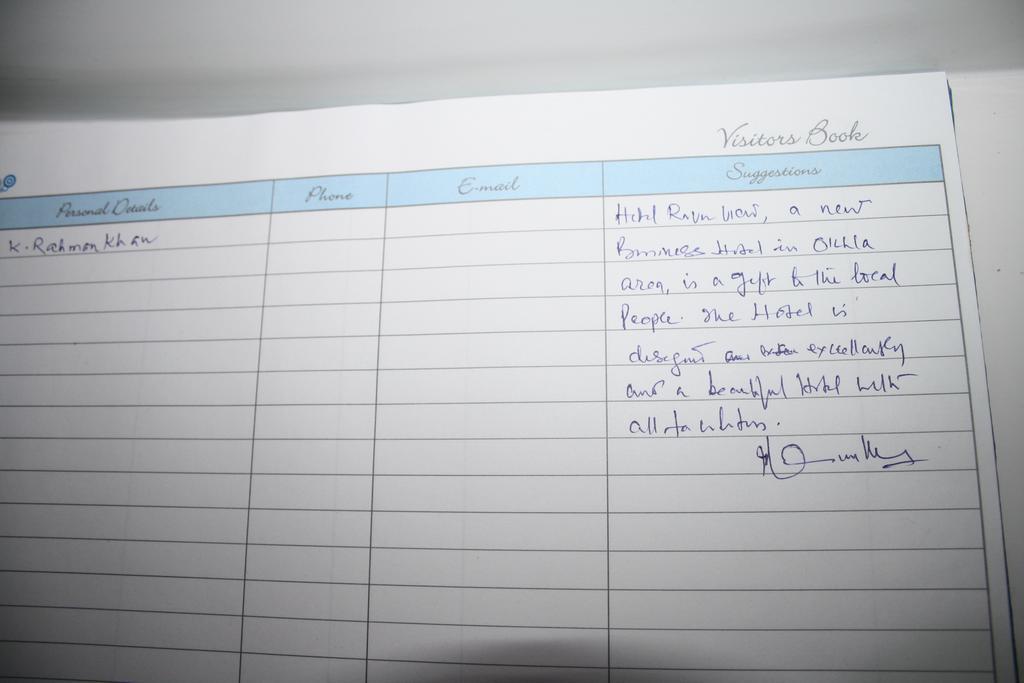 Visitors Book
Personal Details Phone E-mail Suggestions
K. Rahman Khan
Hotel River View, a new
Business Hotel in Okhla
area, is a gift to the local
People. The Hotel is
excellently
and a beautiful Hotel with
all facilities.